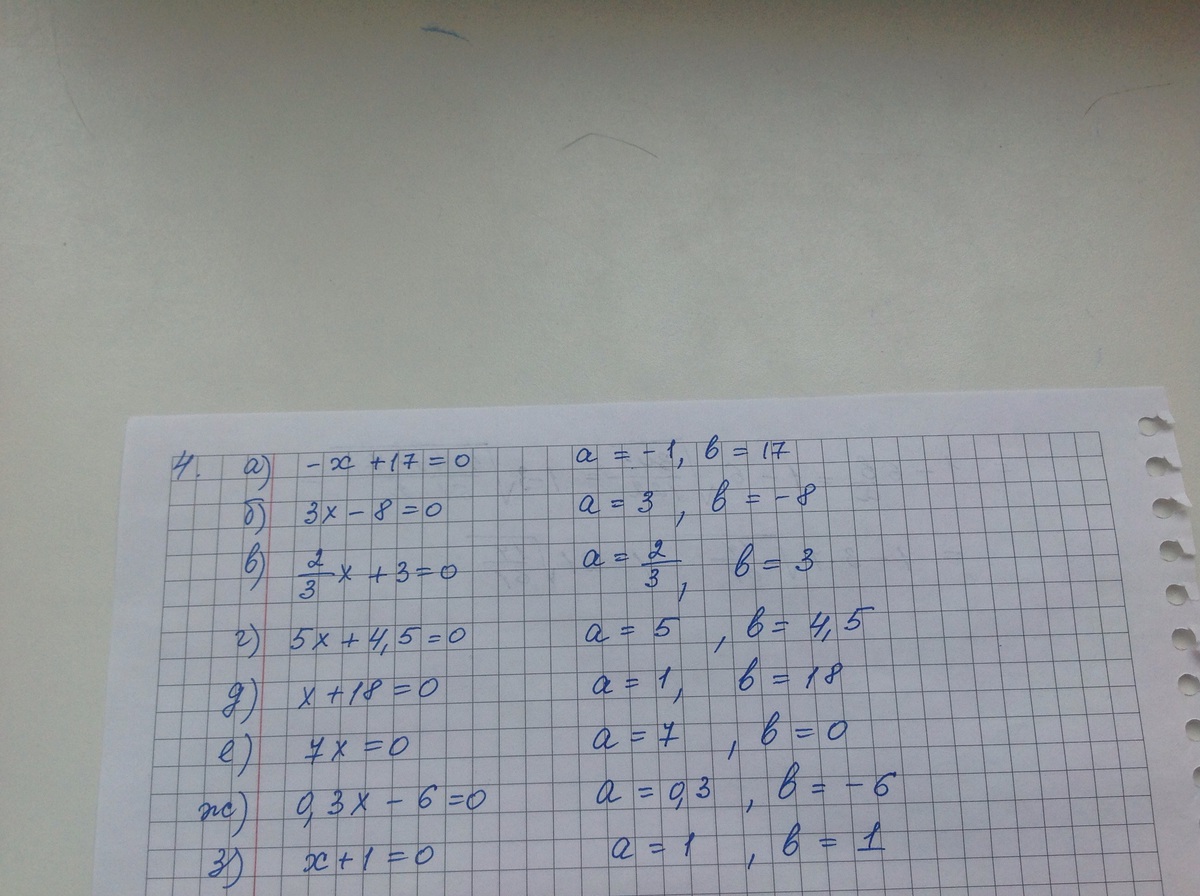 4. а) -x +17=0 a = -1, в = 17
б) 3x - 8 =0 a = 3 , в = -8
в) 2/3 x + 3=0 a = 2/3, в = 3
г) 5x + 4,5 =0 a = 5 , в = 4,5
д) x +18 =0 a = 1, в = 18
е) 7x =0 a = 7 , в = 0
ж) 0,3x - 6 =0 a = 0,3 , в = -6
з) x+1 =0 a = 1 , в = 1